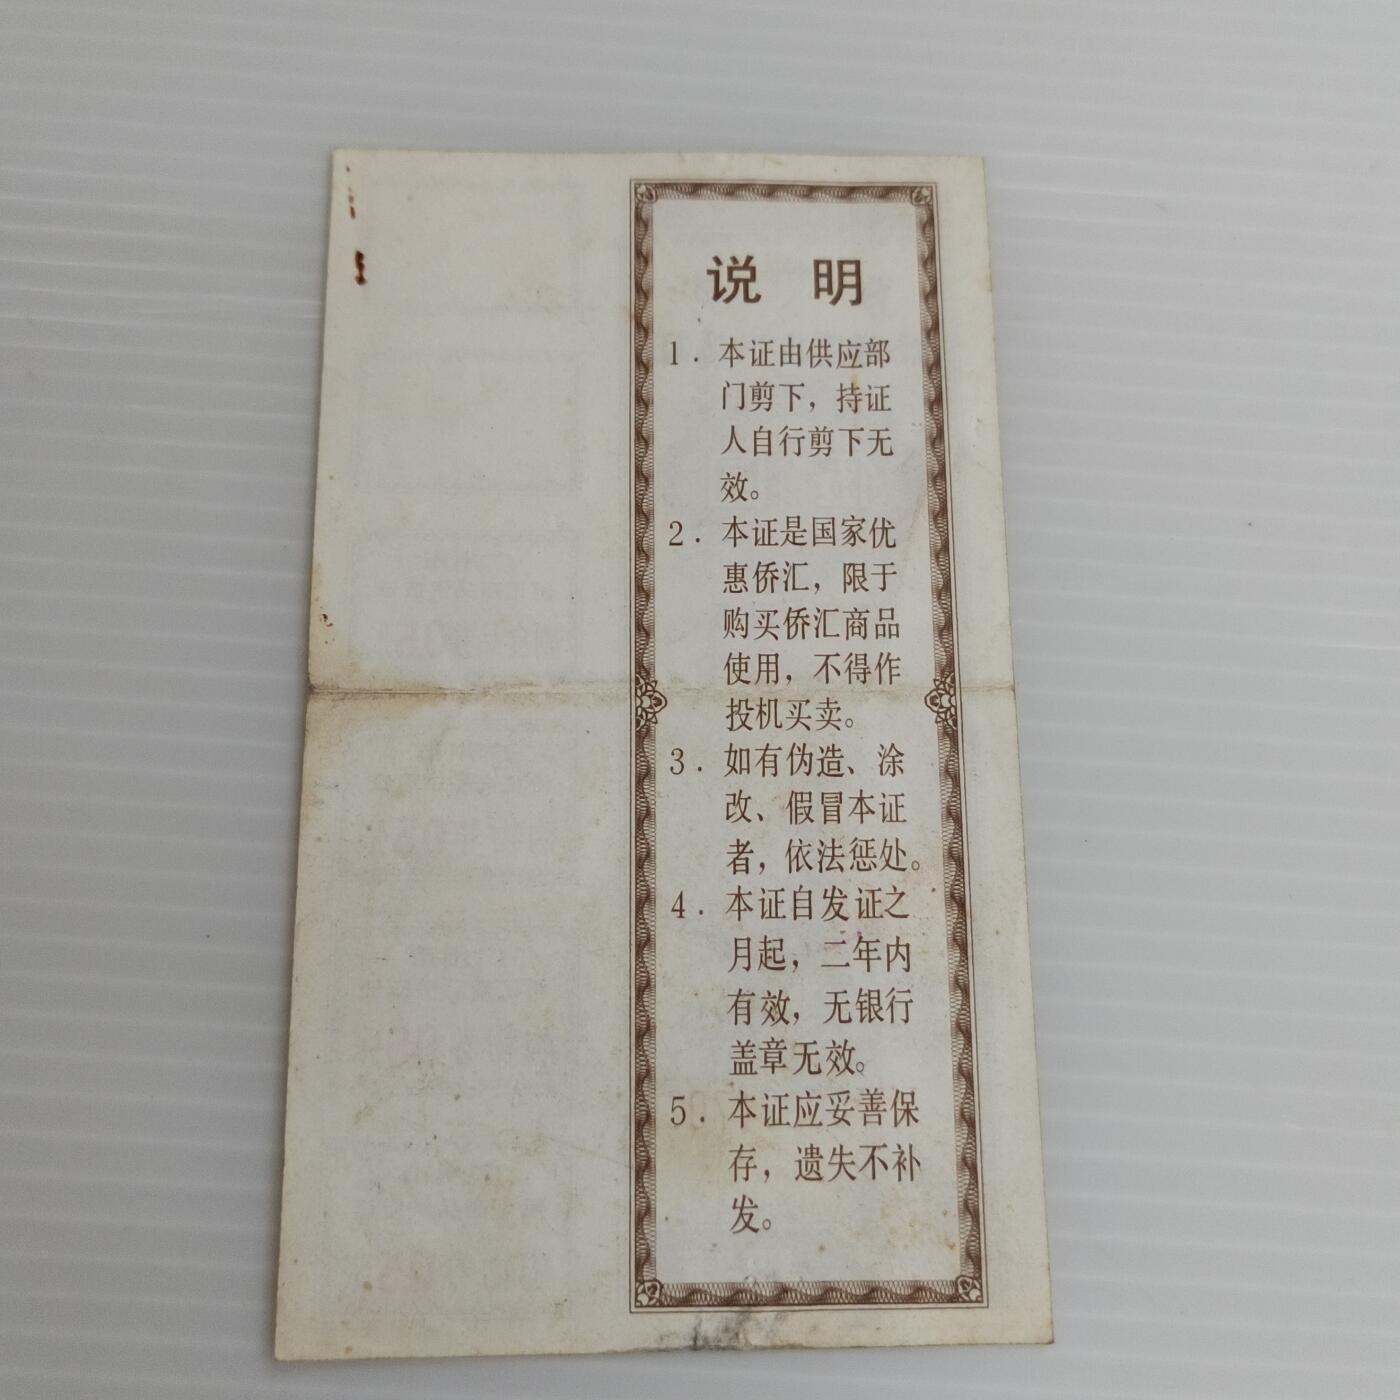 说 明
1．本证由供应部
门剪下，持证
人自行剪下无
效。
2．本证是国家优
惠侨汇，限于
购买侨汇商品
使用，不得作
投机买卖。
3．如有伪造、涂
改、假冒本证
者，依法惩处。
4．本证自发证之
月起，二年内
有效，无银行
盖章无效。
5．本证应妥善保
存，遗失不补
发。